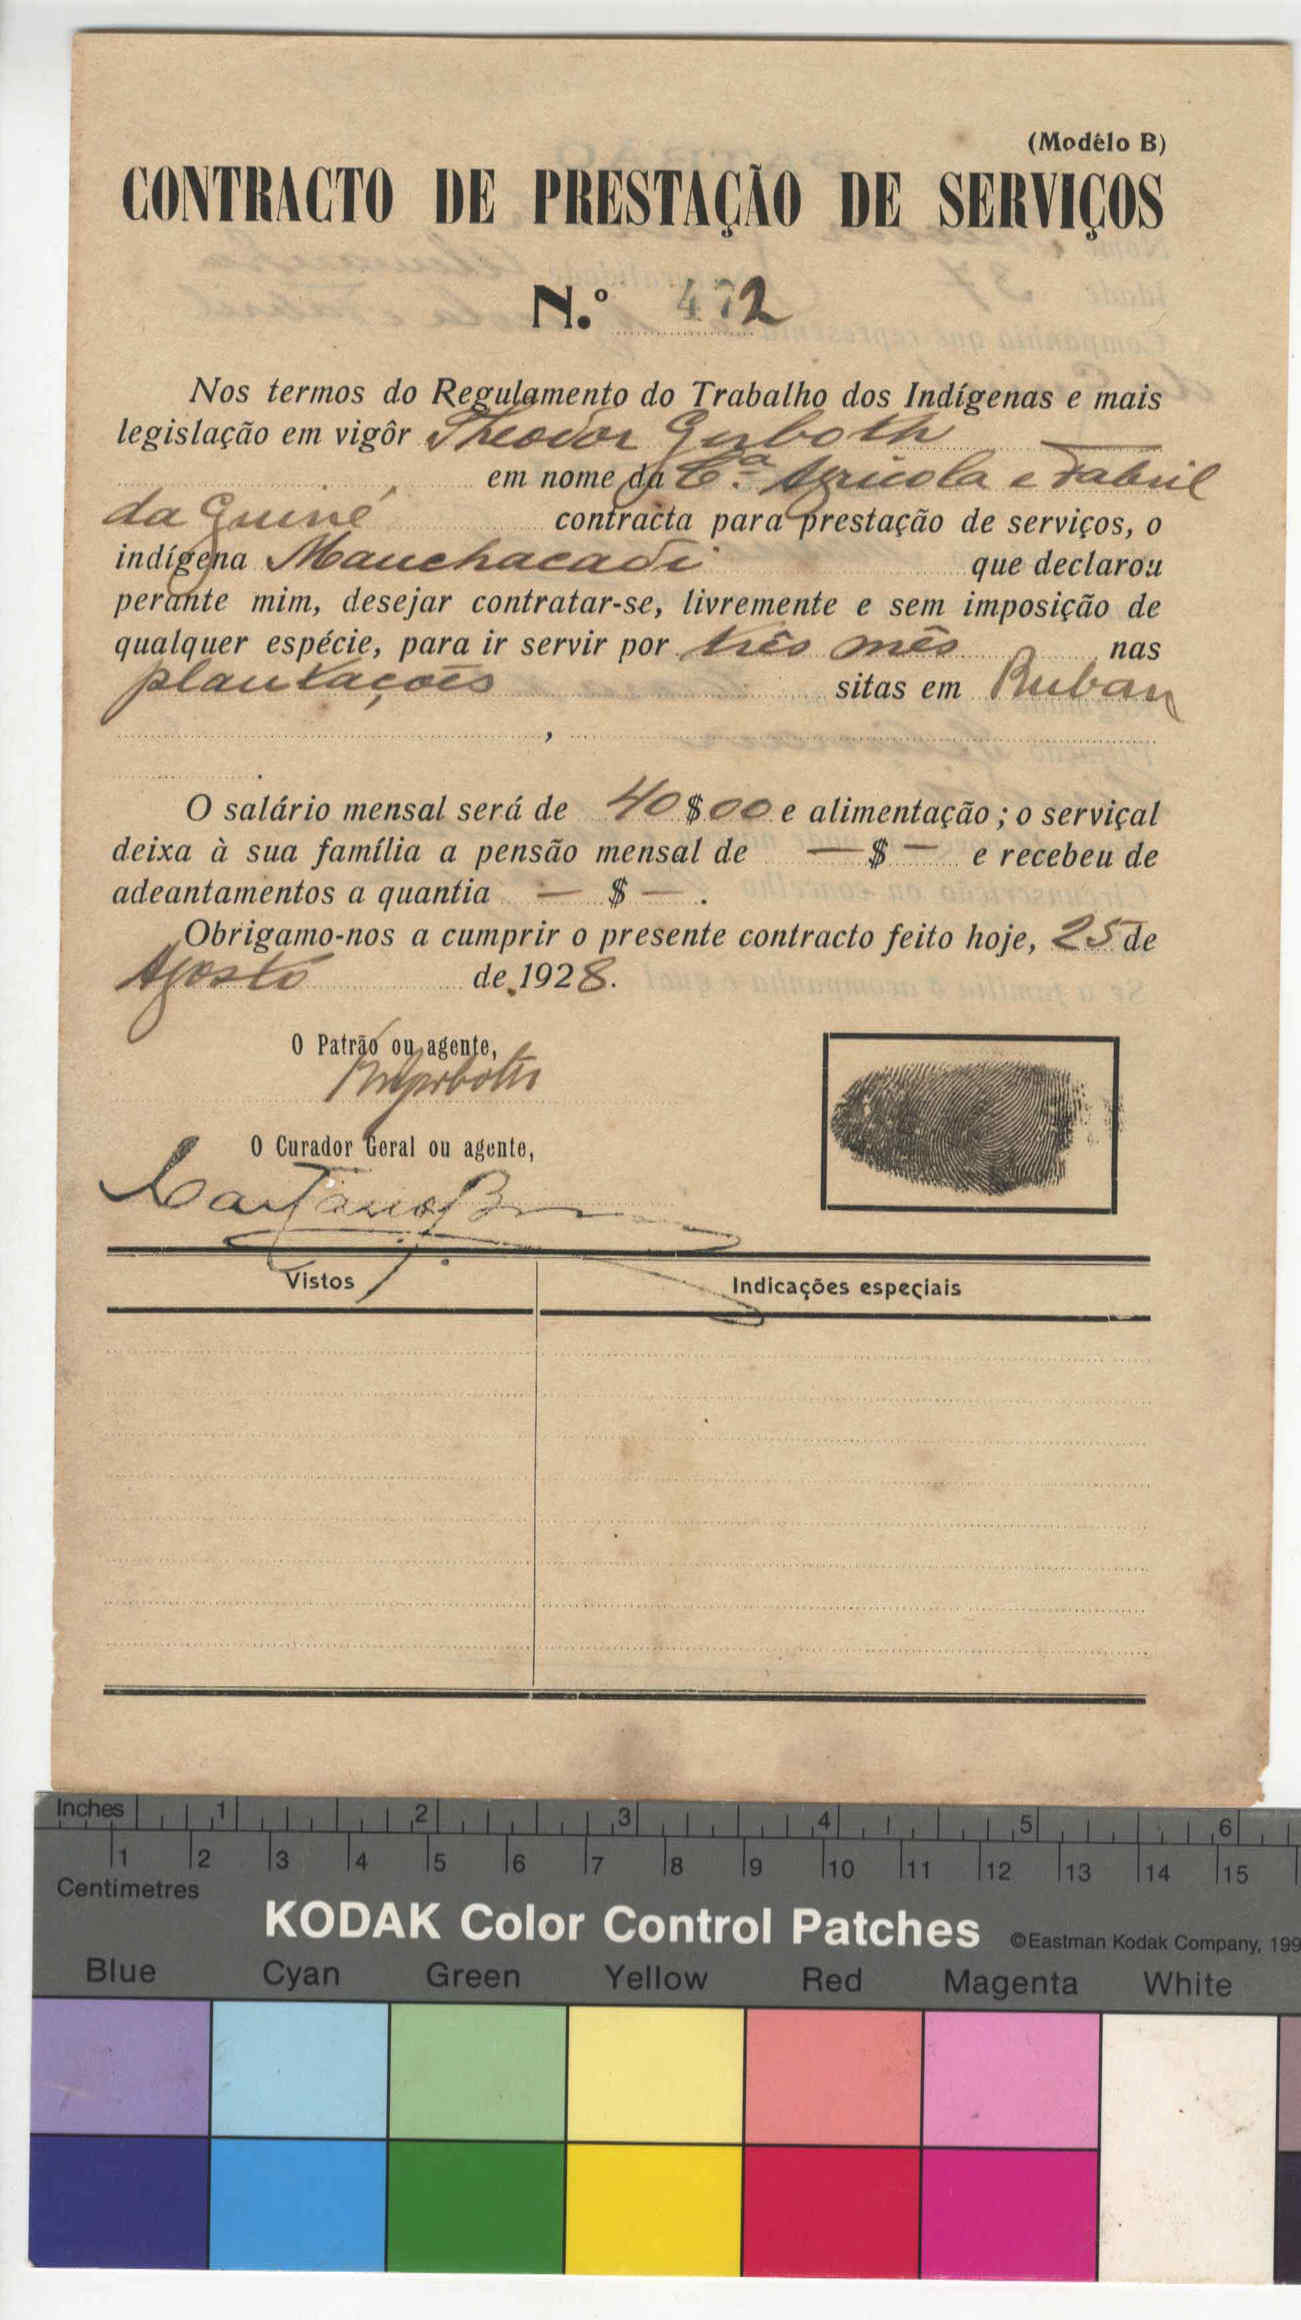 (Modêlo B)
CONTRACTO DE PRESTAÇÃO DE SERVIÇOS
N.º 472
Nos termos do Regulamento do Trabalho dos Indígenas e mais
legislação em vigôr Theodor Gerboth
em nome da C.ª Agricola e Fabril
da Guiné contracta para prestação de serviços, o
indígena Manchacadi que declarou
perante mim, desejar contratar-se, livremente e sem imposição de
qualquer espécie, para ir servir por três mês nas
plantaçoēs sitas em Ruban
,
.
O salário mensal será de 40$00 e alimentação; o serviçal
deixa à sua família a pensão mensal de —$— e recebeu de
adeantamentos a quantia —$—.
Obrigamo-nos a cumprir o presente contracto feito hoje, 25 de
Agosto de 1928.
O Patrão ou agente,
O Curador Geral ou agente,
Caetano
Vistos
Indicações especiais
Inches 1 2 3 4 5 6
1 2 3 4 5 6 7 8 9 10 11 12 13 14 15
Centimetres
KODAK Color Control Patches ©Eastman Kodak Company, 199
Blue Cyan Green Yellow Red Magenta White